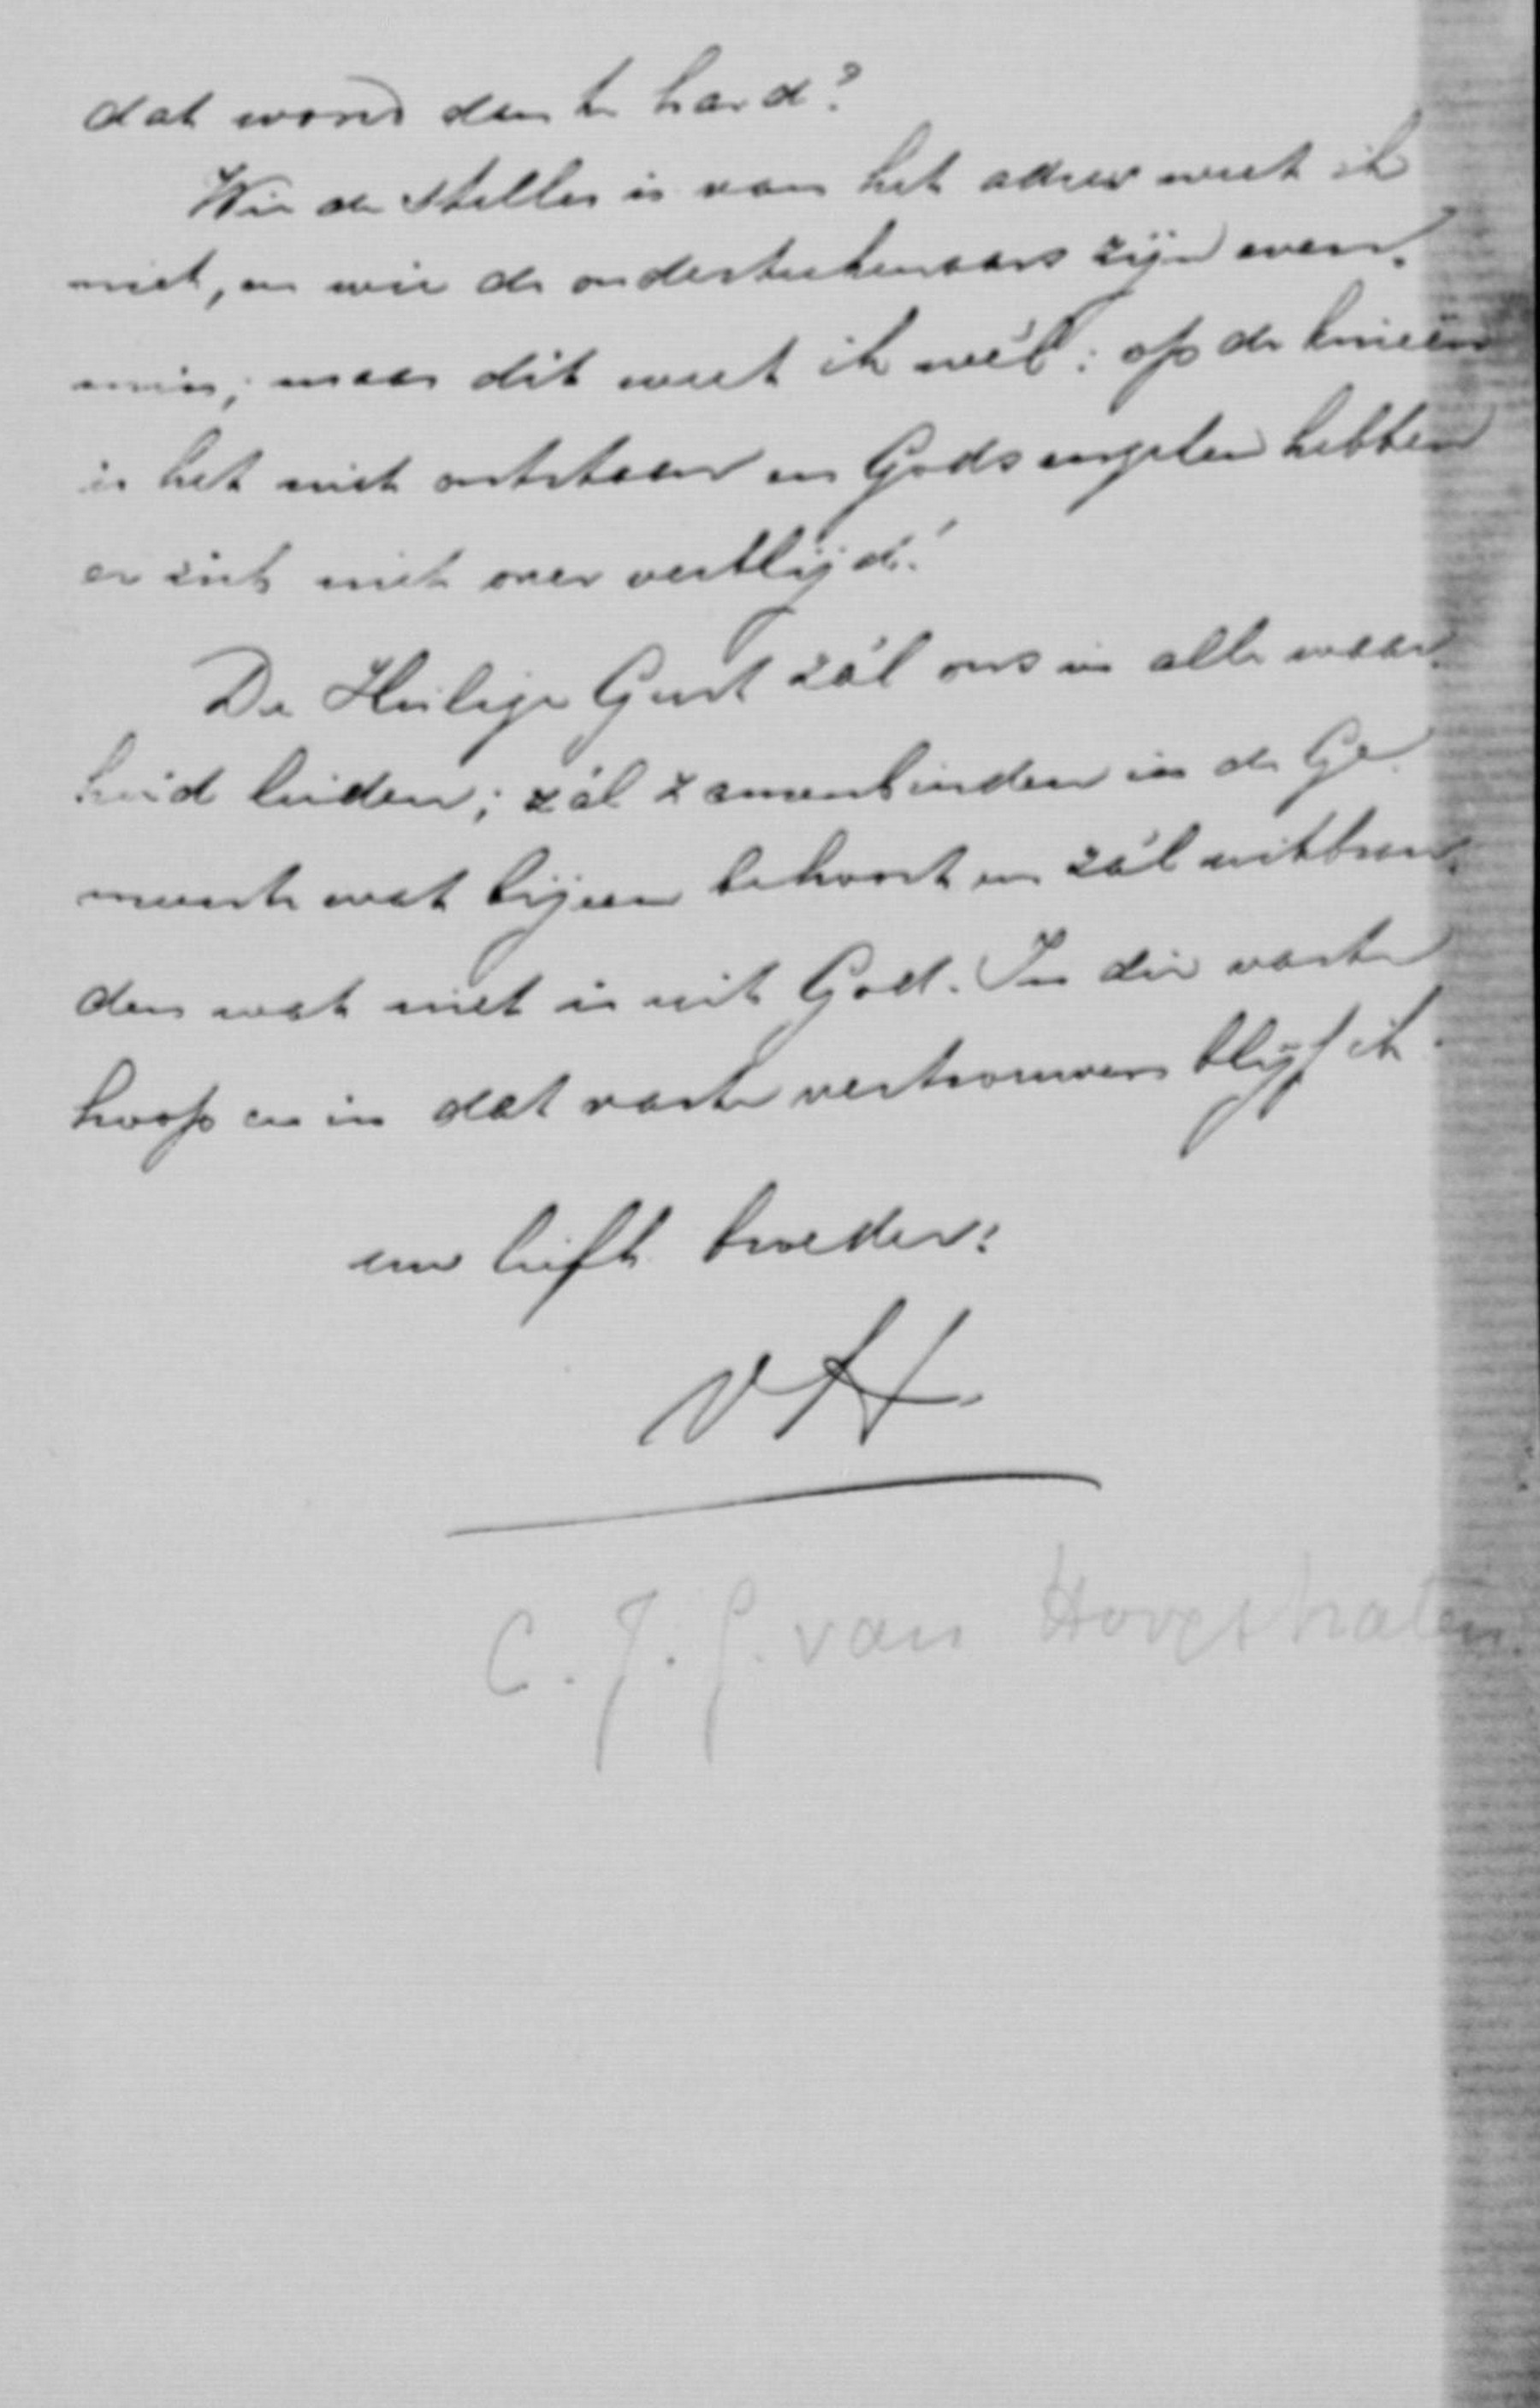 dat woord dan te hard?
Wie de steller is van het adres weet ik
niet, en wie de onderteekenaars zijn even-
min; maar dit weet ik wél: op de knieën
is het niet ontstaan en Gods engelen hebben
er zich niet over verblijd!
De Heilige Geest zál ons in alle waar-
heid leiden; zál zamenbinden in de Ge-
meente wat bijeen behoort en zál uitbran-
den wat niet is uit God. In die vaste
hoop en in dat vaste vertrouwen blijf ik
uw liefh. broeder:
v H.
C. J. G. van Hoogstraten